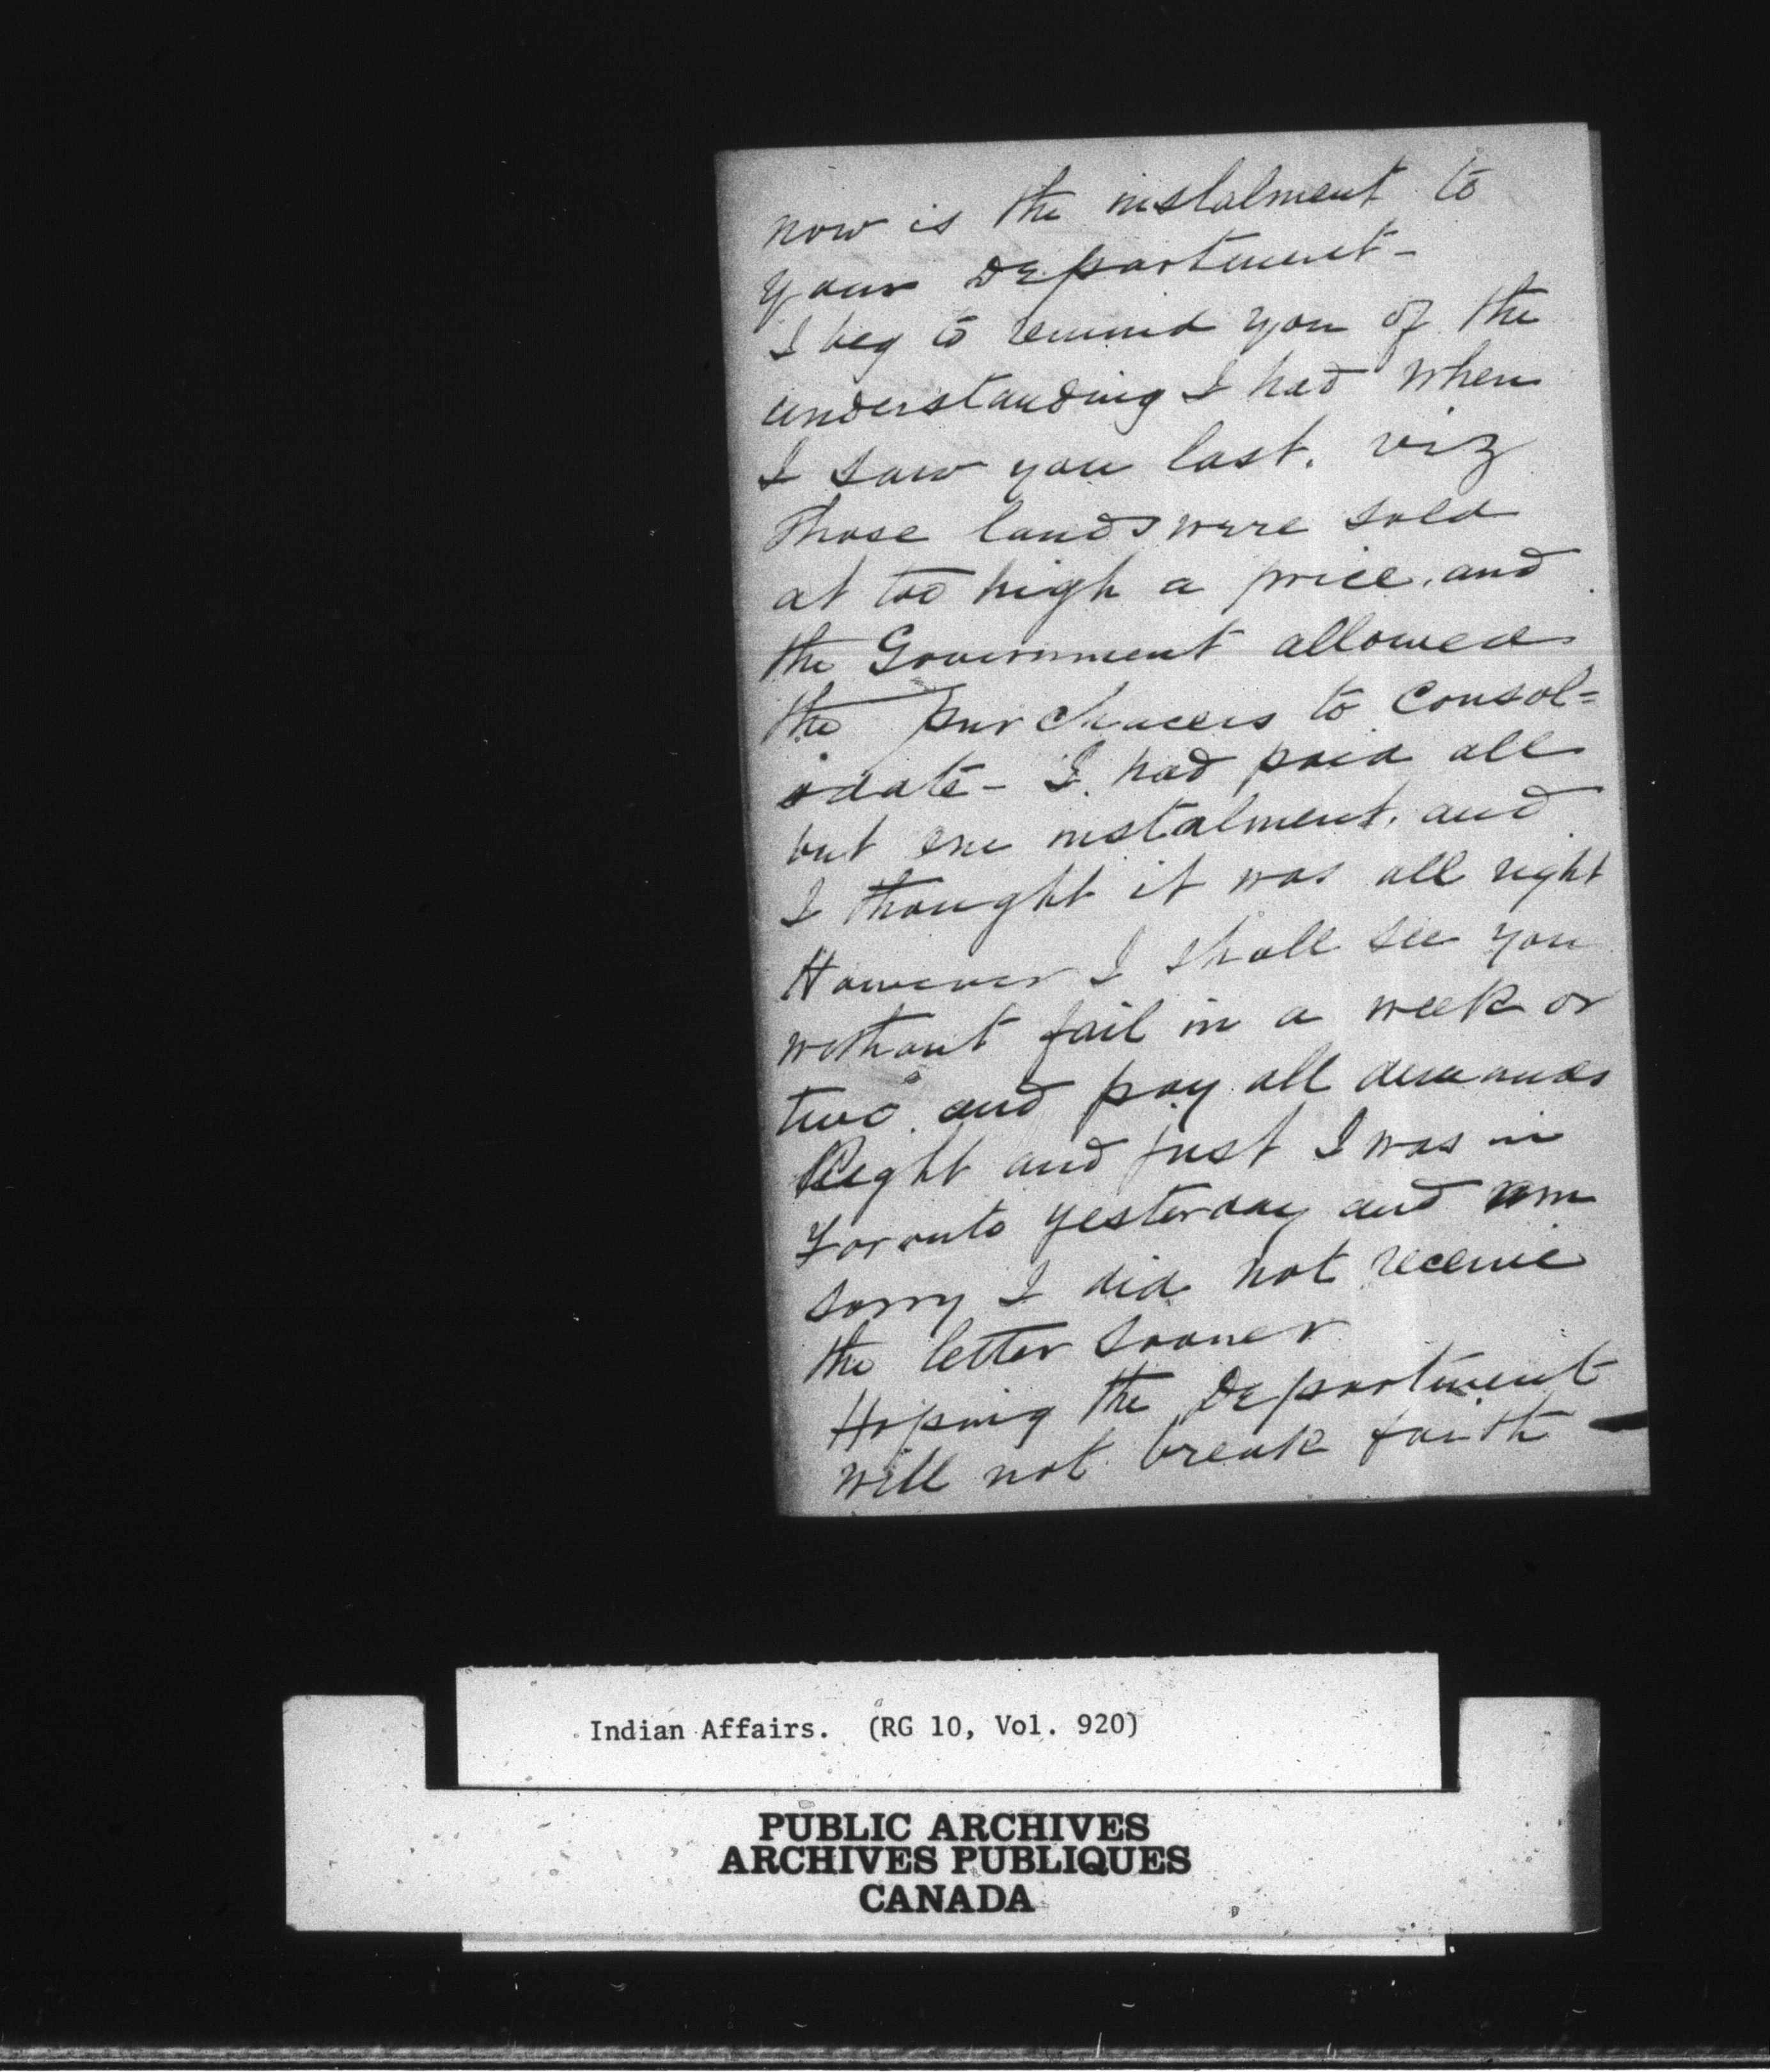 now is the instalment to
your Department -
I beg to remind you of the
understanding I had when
I saw you last. viz
Those lands were sold
at too high a price, and
the Government allowed
the purchacers to Consol=
idate - I had paid all
but one instalment, and
I thought it was all right
However I shall see you
without fail in a week or
two, and pay all demands
Right and just I was in
Toronto yesterday and am
sorry I did not receive
the letter sooner
Hoping the Department
will not break faith
Indian Affairs. (RG 10, Vol. 920)
PUBLIC ARCHIVES
ARCHIVES PUBLIQUES
CANADA